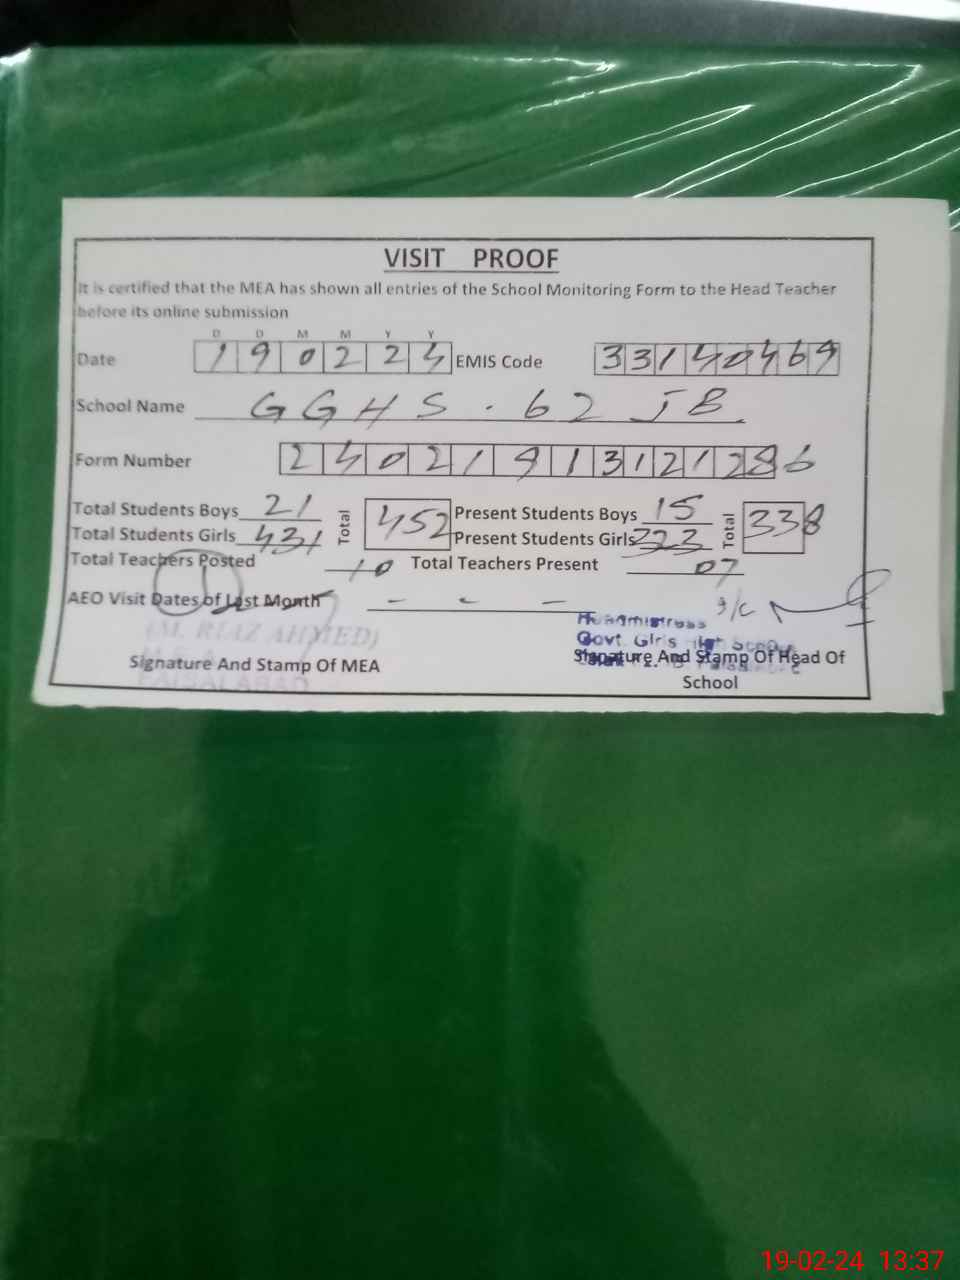 VISIT PROOF
It is certified that the MEA has shown all entries of the School Monitoring Form to the Head Teacher
before its online submission
D D M M Y Y
Date 190224 EMIS Code 33140469
School Name GGHS. 62 JB
Form Number 24021913121286
Total Students Boys 21 Total 452 Present Students Boys 15 Total 338
Total Students Girls 431 Present Students Girls 323
Total Teachers Posted 10 Total Teachers Present 07
AEO Visit Dates of Last Month - - - I/C
(M. RIAZ AHMED)
Headmistress
Govt Girls High School
Signature And Stamp Of MEA Signature And Stamp Of Head Of
School
FAISALABAD
19-02-24 13:37